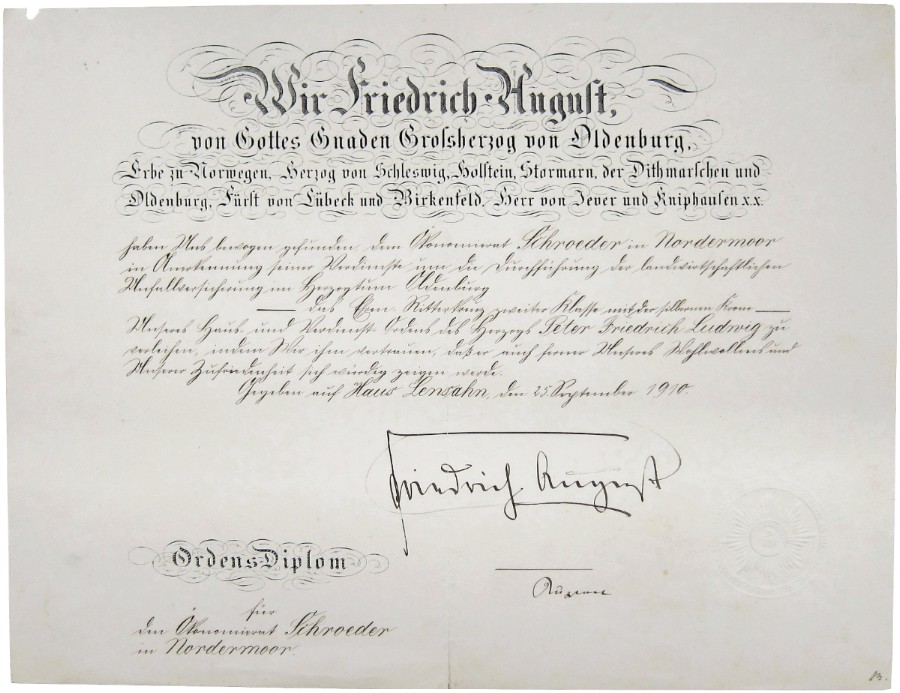 Wir Friedrich August,
von Gottes Gnaden Grossherzog von Oldenburg,
Erbe zu Norwegen, Herzog von Schleswig, Holstein, Stormarn, der Dithmarschen und
Oldenburg, Fürst von Lübeck und Birkenfeld, Herr von Jever und Kniphausen x.x.
haben Uns bewogen gefunden, dem Ökonomierat Schroeder in Nordermoor
in Anerkennung seiner Verdienste um die Durchführung der landwirtschaftlichen
Unfallversicherung im Herzogtum Oldenburg
— das Ehren-Ritterkreuz zweiter Klasse mit der silbernen Krone —
Unseres Haus und Verdienst Ordens des Herzogs Peter Friedrich Ludwig zu
verleihen, indem Wir ihm vertrauen, daß er auch ferner Unseres Wohlwollens und
Unserer Zufriedenheit sich würdig zeigen werde.
Gegeben auf Haus Lensahn, den 25. September 1910.
Friedrich August
Ordens-Diplom
für
den Ökonomierat Schroeder
in Nordermoor.